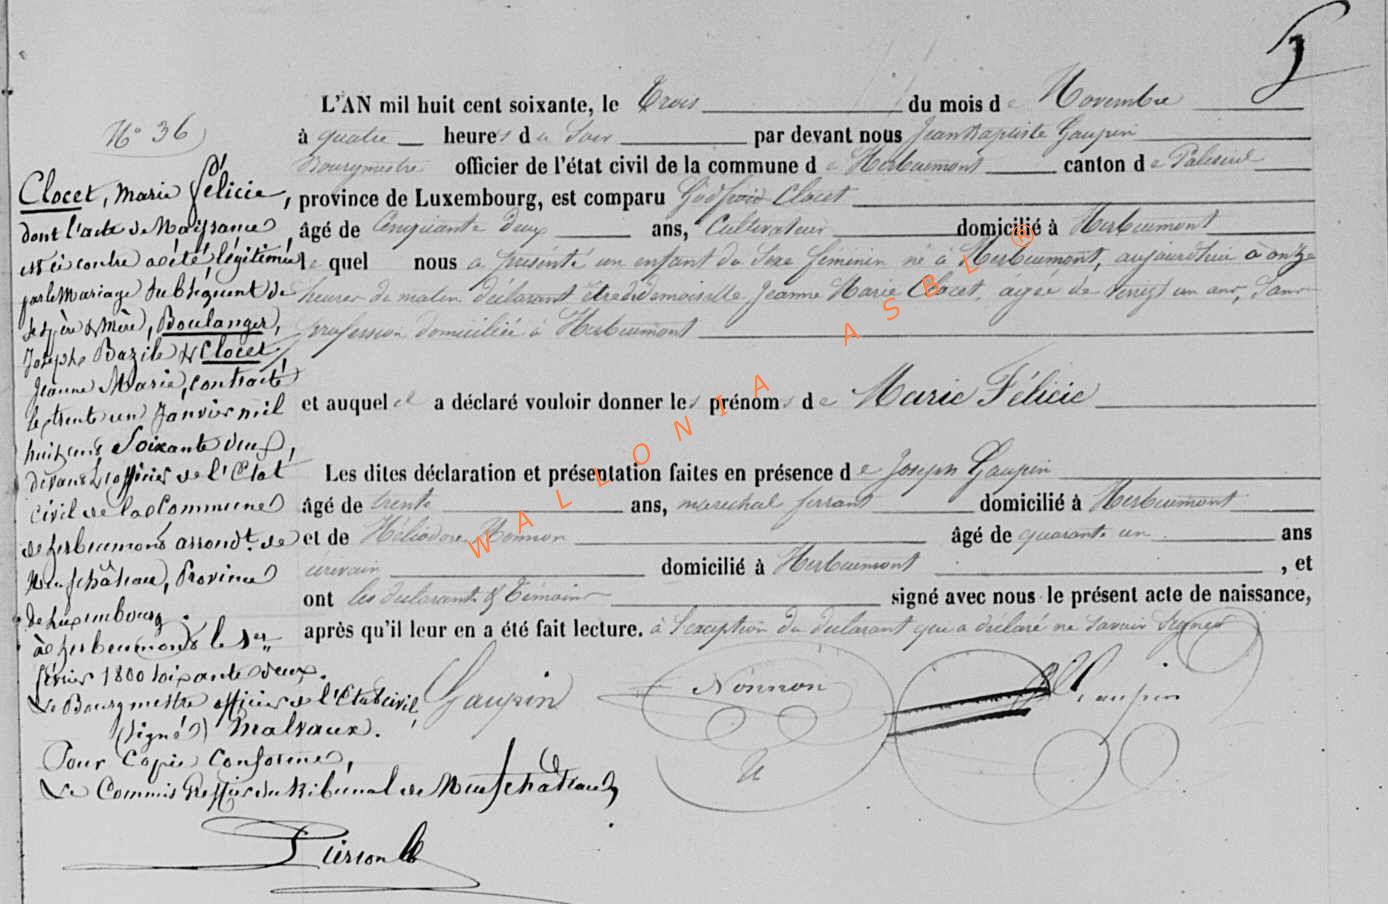 L'AN mil huit cent soixante, le Trois du mois de Novembre
à quatre heures du Soir par devant nous Jean Baptiste Gaupin
Bourgmestre officier de l'état civil de la commune de Herbeumont canton de Paliseul
province de Luxembourg, est comparu Godfroid Clocet
âgé de Cinquante deux ans, Cultivateur domicilié à Herbeumont
le quel nous a présenté un enfant du Sexe féminin né à Herbeumont, aujourd'hui à onze
heures du matin déclarant être de demoiselle Jeanne Marie Clocet, agée de vingt un ans, Sans
profession domiciliée à Herbeumont
et auquel il a déclaré vouloir donner les prénoms de Marie Félicie
Les dites déclaration et présentation faites en présence de Joseph Gaupin
âgé de trente ans, marechal ferrant domicilié à Herbeumont
et de Héliodore Nonnon âgé de quarante un ans
écrivain domicilié à Herbeumont , et
ont les déclarant & témoins signé avec nous le présent acte de naissance,
après qu'il leur en a été fait lecture. à l'exception du déclarant qui a déclaré ne savoir Signer
Gaupin
Nonnon
Gaupin
N° 36
Clocet, Marie félicie,
dont l'acte de Naissance
est ci contre a été légitimée
par le Mariage Subséquent de
ses père & Mère, Boulanger,
Joseph Bazile & Clocet
Jeanne Marie, contracté
le trente un Janvier mil
huit cent Soixante deux,
devant l'officier de l'Etat
Civil de la Commune
de herbeumont arrondt. de
Neufchâteau, Province
de Luxembourg.
à herbeumont le 1er
février 1800 soixante deux.
Le Bourgmestre officier de l'Etat civil,
(signé) Malvaux.
Pour Copie conforme,
Le Commis Greffier du tribunal de Neufchâteau,
WALLONIA ASBL ®